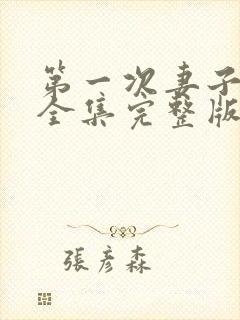 第一次妻子
全集完整版
張彥森